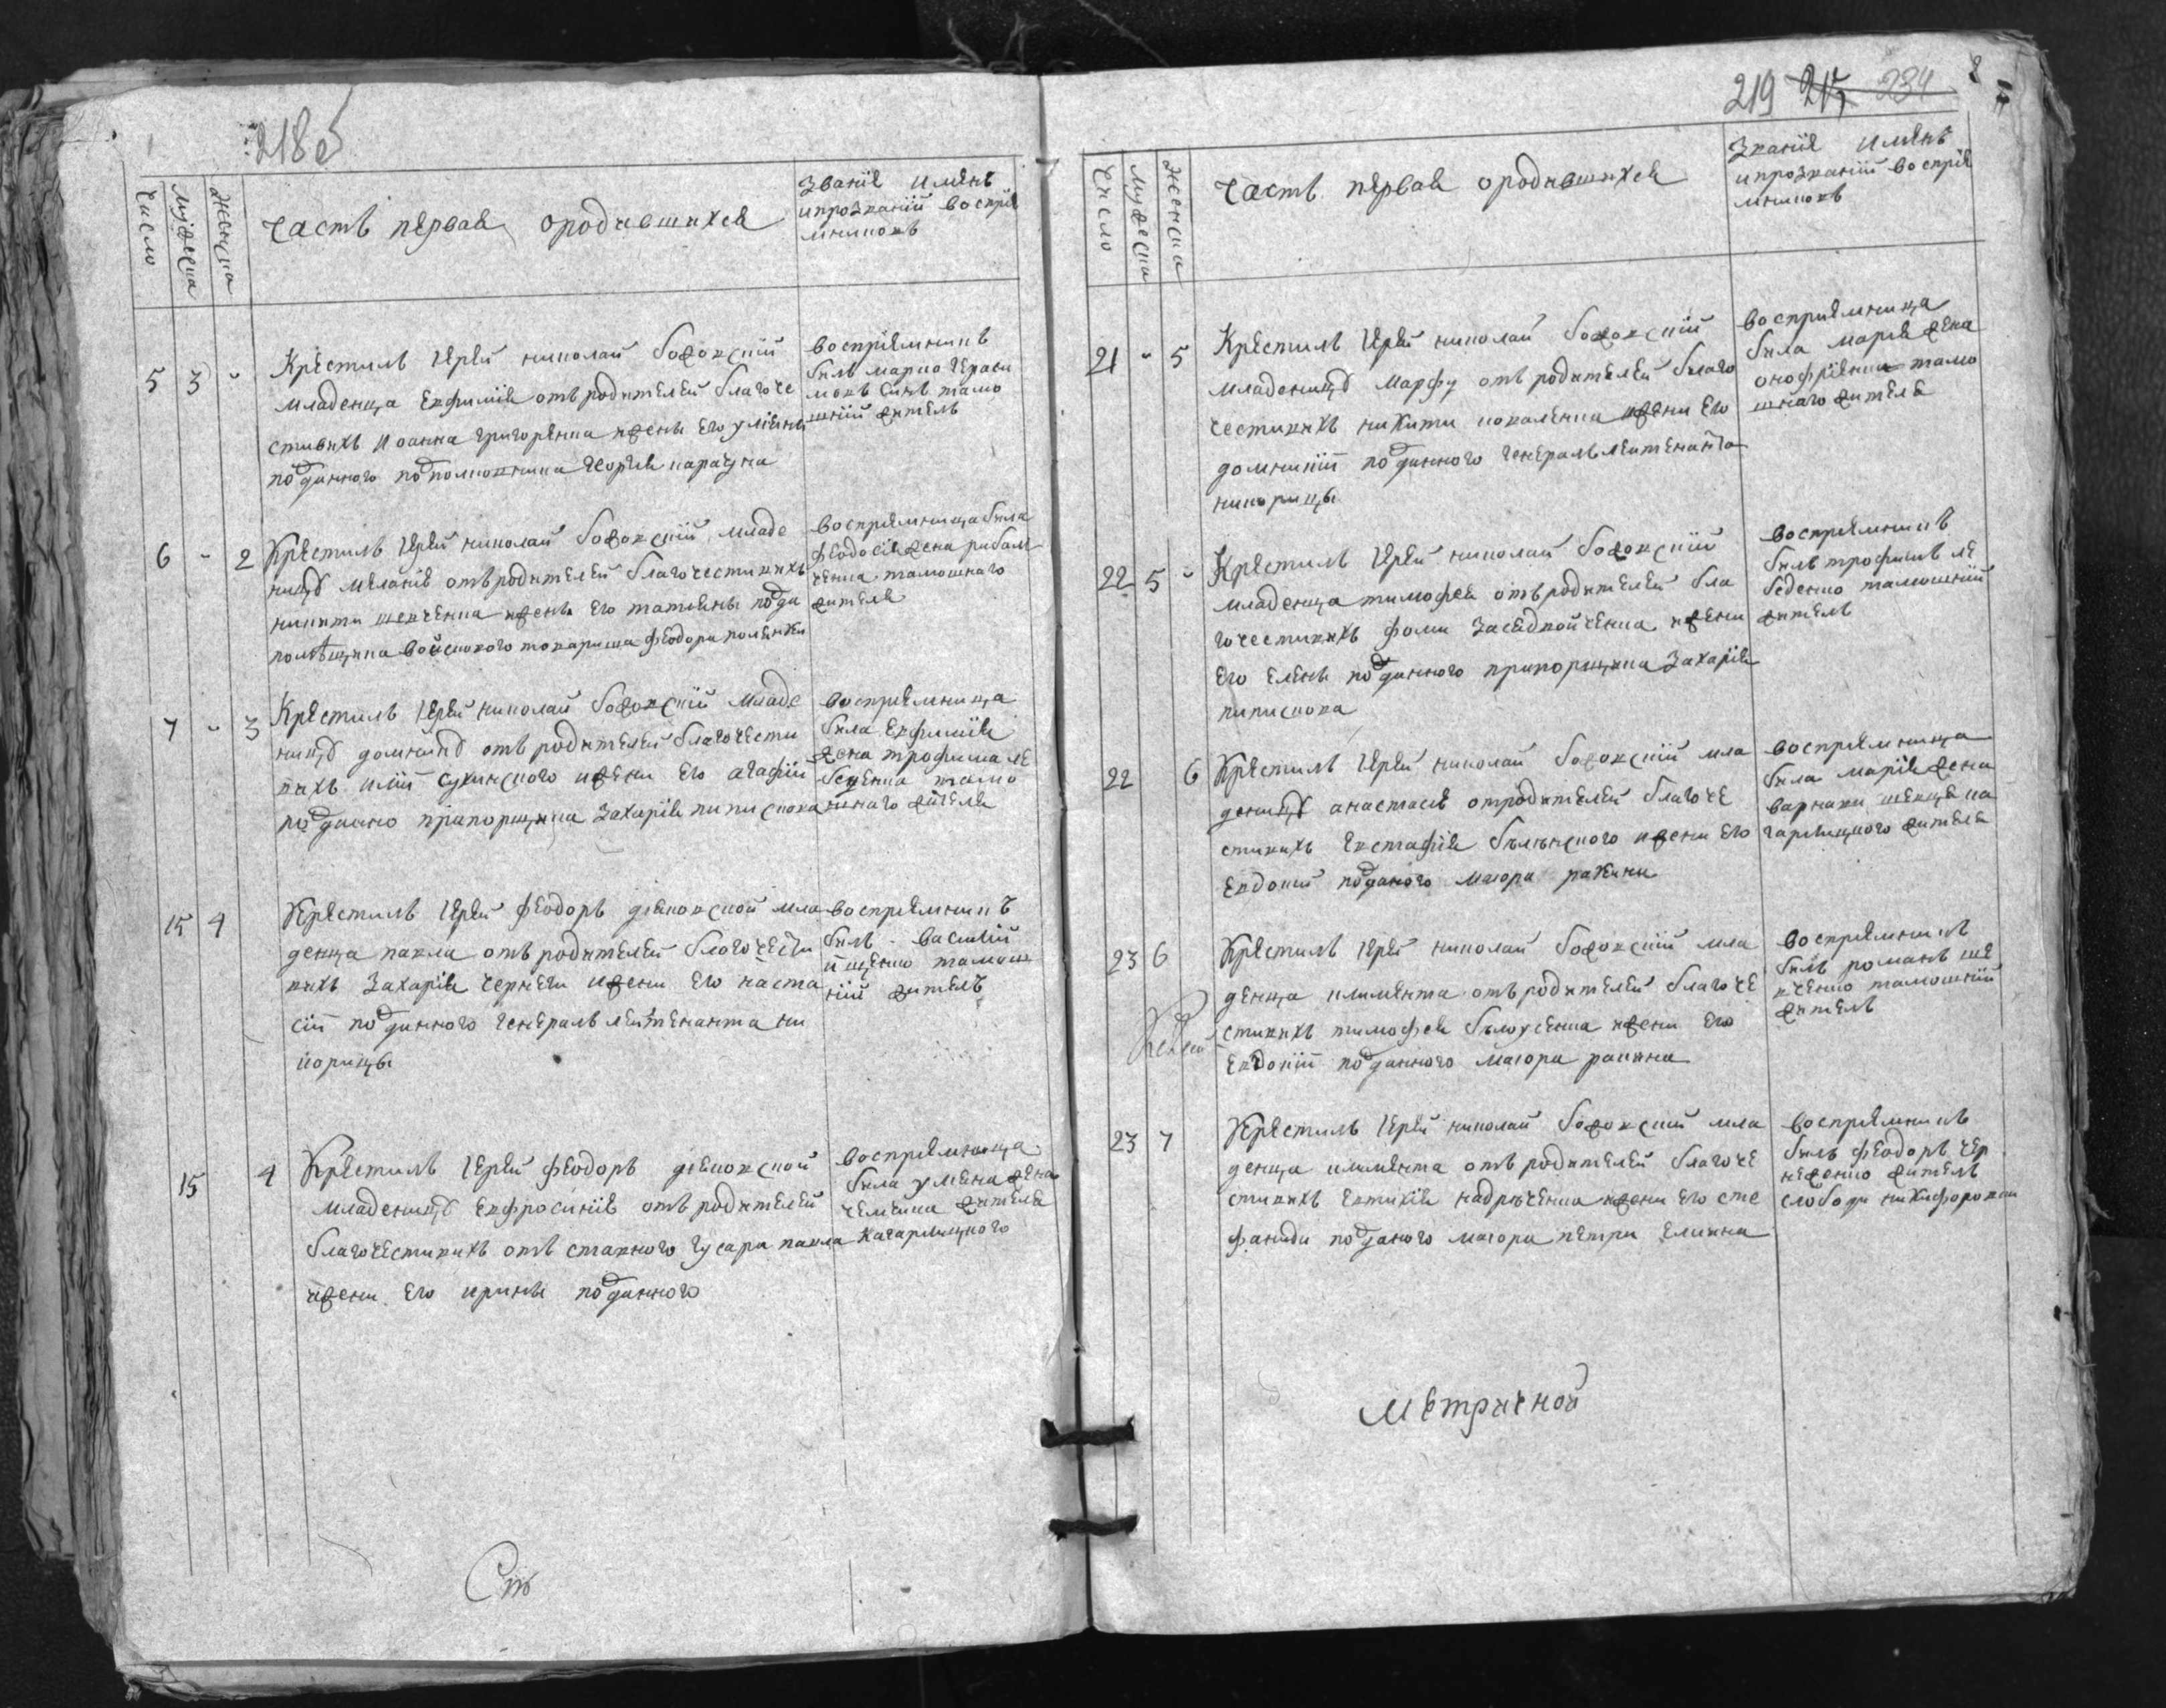 218 об
Число
Мужеска
Женска
Часть первая ородившихся
Званїе именъ
ипрозванїй воспрїе
мниковъ
5 3 -
Крестилъ Іерей николай божовскїй
младенца Евфимїя отъ родителей благоче
стивихъ Иоанна григоренка ижены Его улияны
подданного подполковника георгия карачуна
воспрїемникъ
былъ марко гераси
мовъ синъ тамо
шнїй житель
6 - 2
Крестилъ Іерей николай божовскїй младе
ницу меланїю отъ родителей благочестивихъ
никити шевченка ижены Его татияны подда
войскового товариша феодора
воспрїемница била
феодосия жена рибал
ченка тамошнаго
жителя
7 - 3
Крестилъ Іерей николай божовскїй младе
ницу домникїю отъ родителей благочести
вихъ илїи сухинского ижени Его агафїи
подданно прапорщика Захарїя пипискова
воспрїемница
била Евфимїя
жена трофима ле
беденка тамо
шнаго жителя
15 4
Крестилъ Іерей феодоръ дїековской мла
денца павла отъ родителей благочести
вихъ Захарїя чернеги ижени Его наста
сїи подданного генералъ лейтенанта ни
корицы
воспрїемникъ
билъ василїй
ищенко тамош
нїй житель
15 4
Крестилъ Іерей феодоръ дїековской
младеницу Евфросинїю отъ родителей
благочестивихъ отъ ставного гусара павла
ижени Его ирины подданного
воспрїемница
била улияна жена
жителя
кагарлицкого
Ст
219 215 234
8
Число
Мужеска
Женска
Часть первая ородившихся
Званїе именъ
ипрозванїй воспрїе
мниковъ
21 - 5
Крестилъ Іерей николай божовскїй
младеницу Марфу отъ родителей благо
честивихъ никити коваленка ижени Его
домникїи подданного генералъ лейтенанта
никорицы
воспрїемница
била марїя жена
онофрїенка тамо
шнаго жителя
22 5 -
Крестилъ Іерей николай божовскїй
младенца тимофея отъ родителей бла
гочестивихъ фоми ижени
Его Елены подданного прапорщика Захарїя
пипискова
воспрїемникъ
билъ трофимъ ле
беденко тамошнїй
житель
22 6
Крестилъ Іерей николай божовскїй мла
деницу анастасїю отродителей благоче
стивихъ Евстафїя белинского ижени Его
Евдокїи подданого маiора ракини
воспрїемница
била марїя жена
варнави ка
гарлицкого жителя
23 6
Крестилъ Іерей николай божовскїй мла
денца климента отъ родителей благоче
стивихъ тимофея белоусенка ижени Его
Евдокїи подданного маiора ракина
воспрїемникъ
билъ романъ ше
вченко тамошнїй
житель
23 7
Крестилъ Іерей николай божовскїй мла
денца климента отъ родителей благоче
стивихъ Евтихїя надточенка ижени Его сте
фаниди подданого маiора петра Елкина
воспрїемникъ
билъ феодоръ чер
неженко житель
слободи никифоровки
Метричной